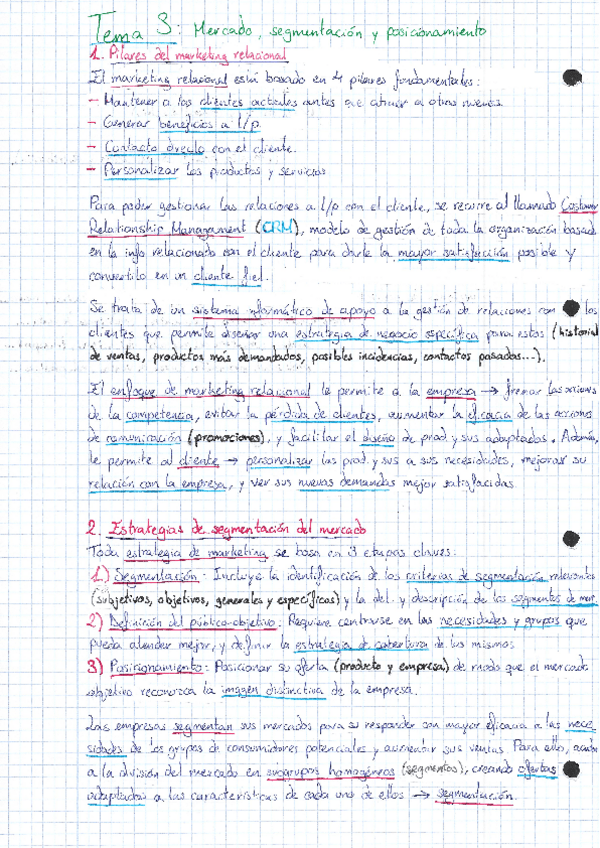 Tema 3: Mercado, segmentación y posicionamiento
1. Pilares del marketing relacional
El marketing relacional está basado en 4 pilares fundamentales:
- Mantener a los clientes actuales antes que atraer a otros nuevos.
- Generar beneficios a l/p.
- Contacto directo con el cliente.
- Personalizar los productos y servicios
Para poder gestionar las relaciones a l/p con el cliente, se recurre al llamado Costumer
Relationship Managament (CRM), modelo de gestión de toda la organización basada
en la info relacionada con el cliente para darle la mayor satisfacción posible y
convertirlo en un cliente fiel.
Se trata de un sistema informático de apoyo a la gestión de relaciones con los
clientes que permite diseñar una estrategia de negocio específica para estos (historial
de ventas, productos más demandados, posibles incidencias, contactos pasados...).
El enfoque de marketing relacional le permite a la empresa → frenar las acciones
de la competencia, evitar la pérdida de clientes, aumentar la eficacia de las acciones
de comunicación (promociones), y facilitar el diseño de prod y sus adaptados. Además,
le permite al cliente → personalizar las prod y sus a sus necesidades, mejorar su
relación con la empresa, y ver sus nuevas demandas mejor satisfacidas.
2. Estrategias de segmentación del mercado
Toda estrategia de marketing se basa en 3 etapas claves:
1) Segmentación: Incluye la identificación de los criterios de segmentación relevantes
(subjetivos, objetivos, generales y específicos) y la def. y descripción de los segmentos de mer.
2) Definición del público-objetivo: Requiere centrarse en las necesidades y grupos que
pueda atender mejor, y definir la estrategia de cobertura de los mismos
3) Posicionamiento: Posicionar su oferta (producto y empresa) de modo que el mercado
objetivo reconozca la imagen distinctiva de la empresa.
Las empresas segmentan sus mercados para responder con mayor eficacia a las nece
sidades de los grupos de consumidores potenciales y aumentar sus ventas. Para ello, acuden
a la división del mercado en subgrupos homogéneos (segmentos), creando ofertas
adaptadas a las características de cada uno de ellos → segmentación.